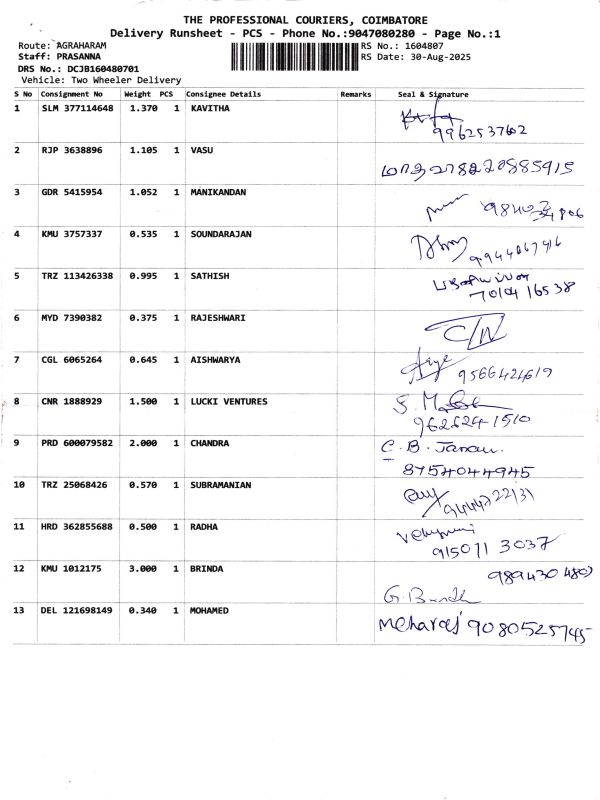 THE PROFESSIONAL COURIERS, COIMBATORE
Delivery Runsheet - PCS - Phone No.:9047080280 - Page No.:1
Route: AGRAHARAM RS No.: 1604807
Staff: PRASANNA RS Date: 30-Aug-2025
DRS No.: DCJB160480701
Vehicle: Two Wheeler Delivery
S No Consignment No Weight PCS Consignee Details Remarks Seal & Signature
1 SLM 377114648 1.370 1 KAVITHA
9962537602
2 RJP 3638896 1.105 1 VASU
3 GDR 5415954 1.052 1 MANIKANDAN
4 KMU 3757337 0.535 1 SOUNDARAJAN
9944067916
5 TRZ 113426338 0.995 1 SATHISH
7010416538
6 MYD 7390382 0.375 1 RAJESHWARI
C/N
7 CGL 6065264 0.645 1 AISHWARYA
9566424619
8 CNR 1888929 1.500 1 LUCKI VENTURES
9626241510
9 PRD 600079582 2.000 1 CHANDRA
C. B.
8754044945
10 TRZ 25068426 0.570 1 SUBRAMANIAN
11 HRD 362855688 0.500 1 RADHA
9150713037
12 KMU 1012175 3.000 1 BRINDA
13 DEL 121698149 0.340 1 MOHAMED
9080525745